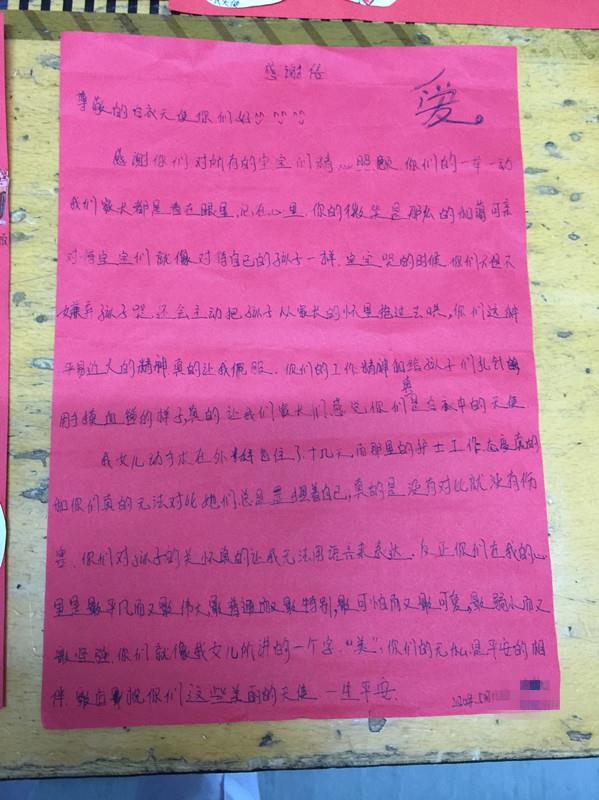 感谢信
爱。
尊敬的白衣天使你们好
感谢你们对所有的宝宝们精心照顾，你们的一举一动
我们家长都是看在眼里，记在心里。你的微笑是那么的和蔼可亲
对待宝宝们就像对待自己的孩子一样。宝宝哭的时候你们不但不
嫌弃孩子哭，还会主动把孩子从家长的怀里抱过去哄，你们这种
平易近人的精神真的让我佩服。你们的工作精神和给孩子们扎针
用手摸血管的样子，真的让我们家长们感觉你们真是白衣中的天使
我女儿动手术在外科住了十几天，而那里的护士工作态度真的
和你们真的无法对比她们总是着自己，真的是没有对比就没有伤
害。你们对孩子的关怀真的让我无法用语言来表达。反正你们在我的心
里是最平凡而又最伟大，最普通而又最特别，最可怕而又最可爱，最而又
最坚强。你们就像我女儿所讲的一个字："美"。你们的无私是平安的相
伴。最后祝你们这些美丽的天使一生平安。
2020年5月